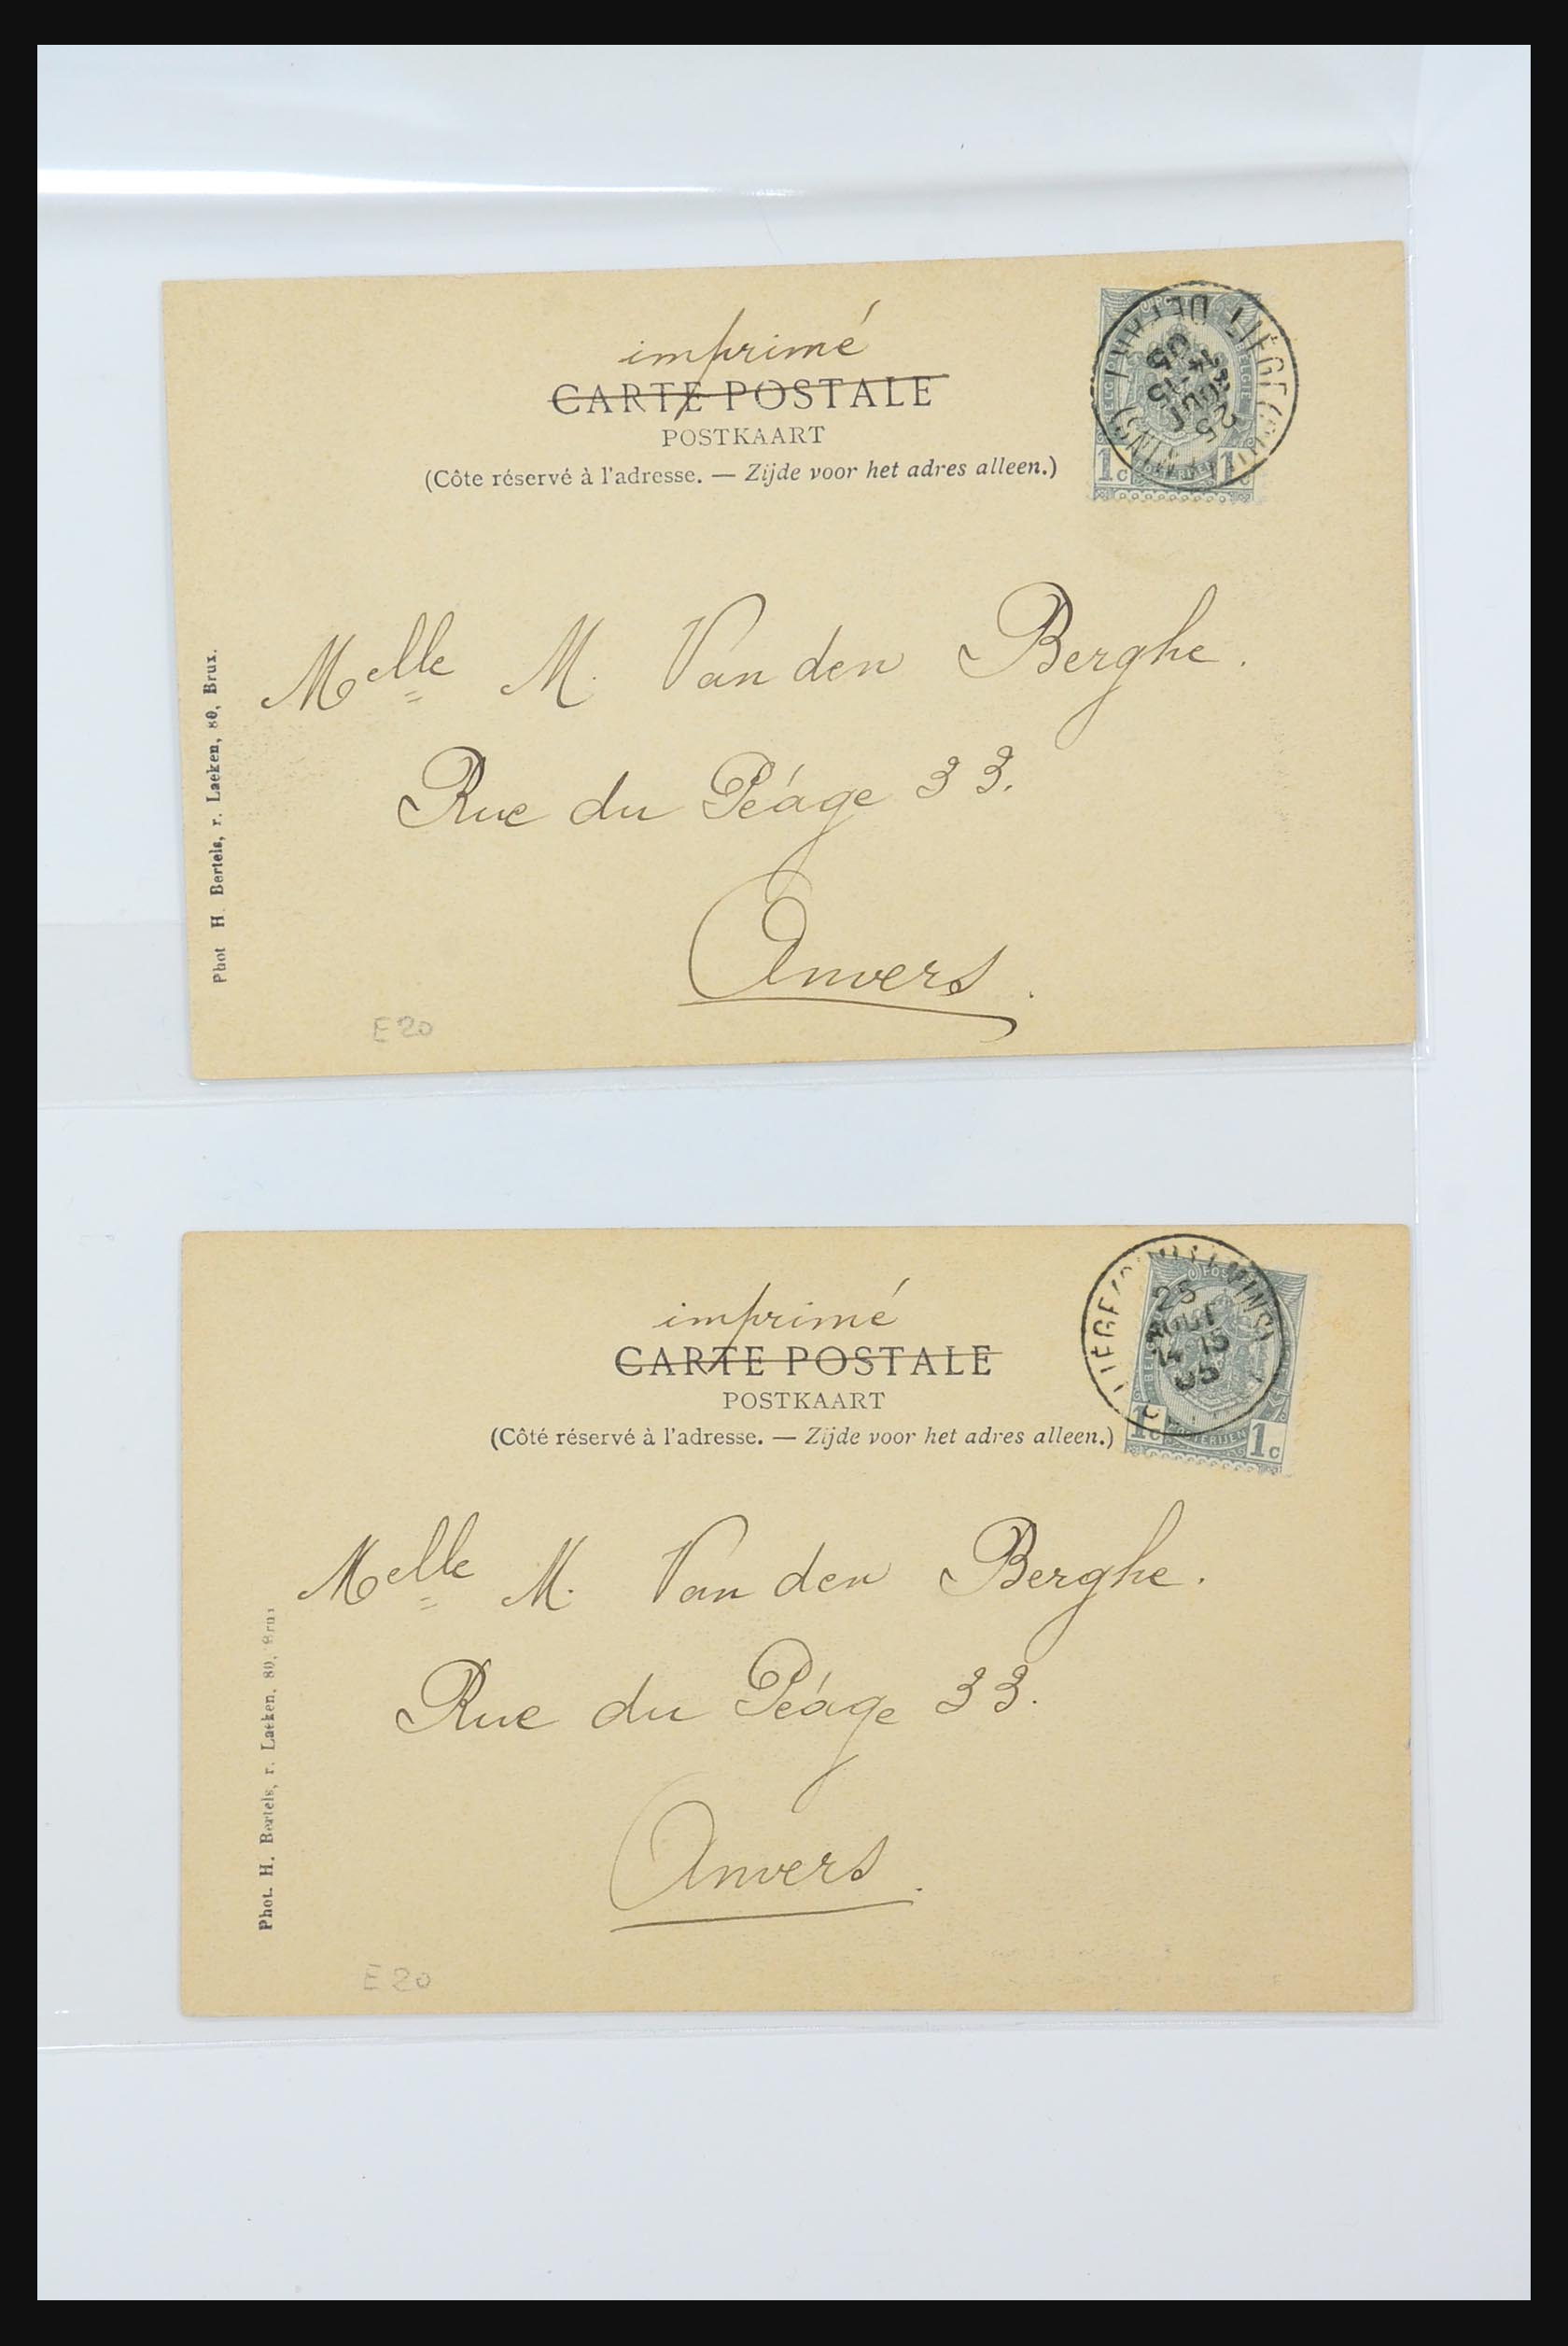 imprimé
CARTE POSTALE
POSTKAART
(Côte réservé à l'adresse. — Zijde voor het adres alleen.)
1c 1c
LIÉGE (GUILLEMINS) DEPART
25
AOUT
14-15
05
Melle M. Van den Berghe.
Rue du Péage 33.
Anvers.
Phot H. Bertels, r. Laeken, 80, Brux.
E20
imprimé
CARTE POSTALE
POSTKAART
(Côté réservé à l'adresse. — Zijde voor het adres alleen.)
1c 1c
LIÉGE (GUILLEMINS)
25
AOUT
14-15
05
Melle M. Van den Berghe.
Rue du Péage 33.
Anvers.
Phot. H. Bertels, r. Laeken, 80, Brux
E20